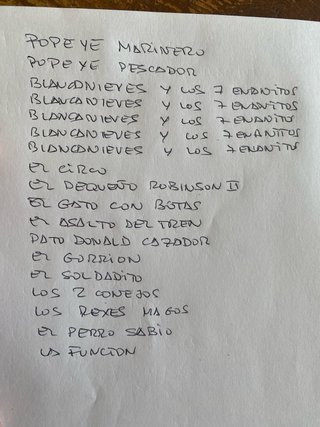 POPEYE MARINERO
POPEYE PESCADOR
BLANCANIEVES Y LOS 7 ENANITOS
BLANCANIEVES Y LOS 7 ENANITOS
BLANCANIEVES Y LOS 7 ENANITOS
BLANCANIEVES Y LOS 7 ENANITOS
BLANCANIEVES Y LOS 7 ENANITOS
EL CIRCO
EL PEQUEÑO ROBINSON II
EL GATO CON BOTAS
EL ASALTO DEL TREN
PATO DONALD CAZADOR
EL GORRION
EL SOLDADITO
LOS 2 CONEJOS
LOS REYES MAGOS
EL PERRO SABIO
LA FUNCION